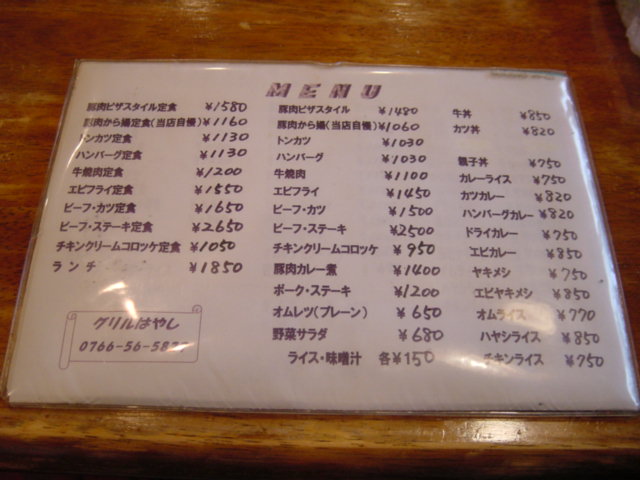 MENU
豚肉ピザスタイル定食 ¥1580
豚肉から揚定食(当店自慢) ¥1160
トンカツ定食 ¥1130
ハンバーグ定食 ¥1130
牛焼肉定食 ¥1200
エビフライ定食 ¥1550
ビーフ・カツ定食 ¥1650
ビーフ・ステーキ定食 ¥2650
チキンクリームコロッケ定食 ¥1050
ランチ ¥1850
グリルはやし
0766-56-5827
豚肉ピザスタイル ¥1480
豚肉から揚(当店自慢) ¥1060
トンカツ ¥1030
ハンバーグ ¥1030
牛焼肉 ¥1100
エビフライ ¥1450
ビーフ・カツ ¥1500
ビーフ・ステーキ ¥2500
チキンクリームコロッケ ¥950
豚肉カレー煮 ¥1400
ポーク・ステーキ ¥1200
オムレツ(プレーン) ¥650
野菜サラダ ¥680
ライス・味噌汁 各¥150
牛丼 ¥850
カツ丼 ¥820
親子丼 ¥750
カレーライス ¥750
カツカレー ¥820
ハンバーグカレー ¥820
ドライカレー ¥750
エビカレー ¥850
ヤキメシ ¥750
エビヤキメシ ¥850
オムライス ¥770
ハヤシライス ¥850
チキンライス ¥750